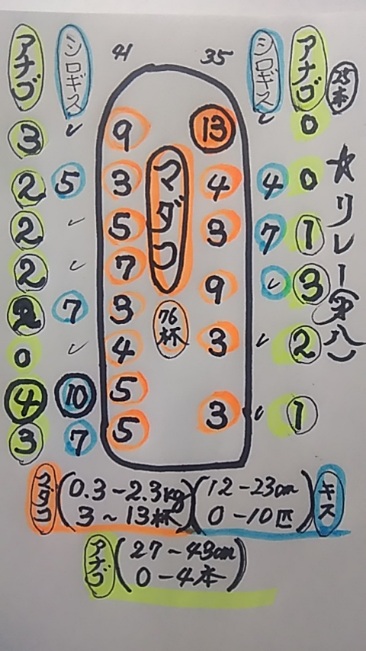 アナゴ
シロギス
41
35
シロギス
アナゴ
25本
3 ✓ 9 13 ✓ 0
2 5 3 4 4 0
2 ✓ 5 3 7 1
2 ✓ 7 9 ✓ 3
2 7 3 3 ✓ 2
0 ✓ 4
4 10 5 3 ✓ 1
3 7 5
マダコ
76杯
☆リレー(第八)
マダコ (0.3-2.3kg 3~13杯)
(12-23cm 0-10匹) キス
アナゴ (27~43cm 0-4本)